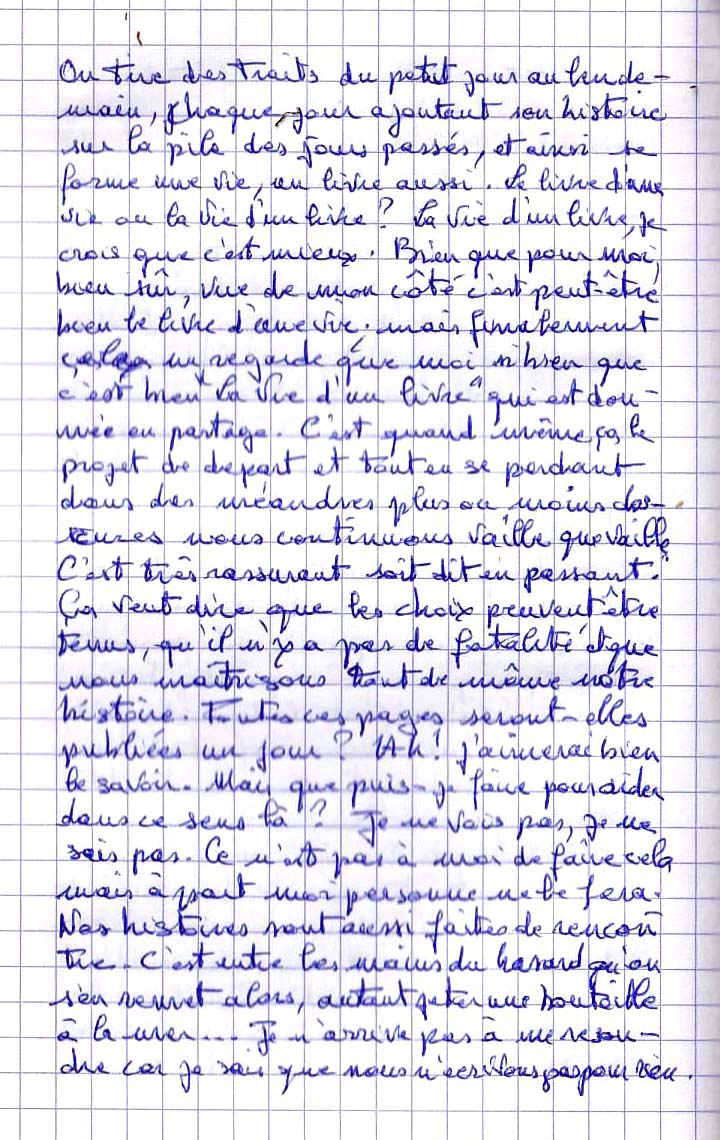 On tire des traits du petit jour au lende-
main, chaque jour ajoutant son histoire
sur la pile des jours passés, et ainsi se
forme une vie, un livre aussi. Le livre d'une
vie ou la vie d'un livre ? La vie d'un livre, je
crois que c'est mieux. Bien que pour moi,
bien sûr, vue de mon côté c'est peut-être
bien le livre d'une vie. mais finalement
cela ne regarde que moi si bien que
c'est bien "la vie d'un livre" qui est don-
née en partage. C'est quand même ça le
projet de depart et tout en se perdant
dans des méandres plus ou moins
nous continuons vaille que vaille
C'est très rassurant soit dit en passant.
Ça veut dire que les choix peuvent être
tenus, qu'il n'y a pas de fatalité et que
nous maîtrisons tout de même notre
histoire. Toutes ces pages seront-elles
publiées un jour ? Ah ! j'aimerai bien
le savoir. Mais que puis-je faire pour aider
dans ce sens là ? Je ne vois pas, Je ne
sais pas. Ce n'est pas à moi de faire cela
mais à part moi personne ne le fera.
Nos histoires sont aussi faites de rencon
tre. C'est entre les mains du hasard qu'on
s'en remet alors, autant jeter une bouteille
à la mer... Je n'arrive pas à me resou-
dre car je sais que nous n'ecrivons pas pour rien.